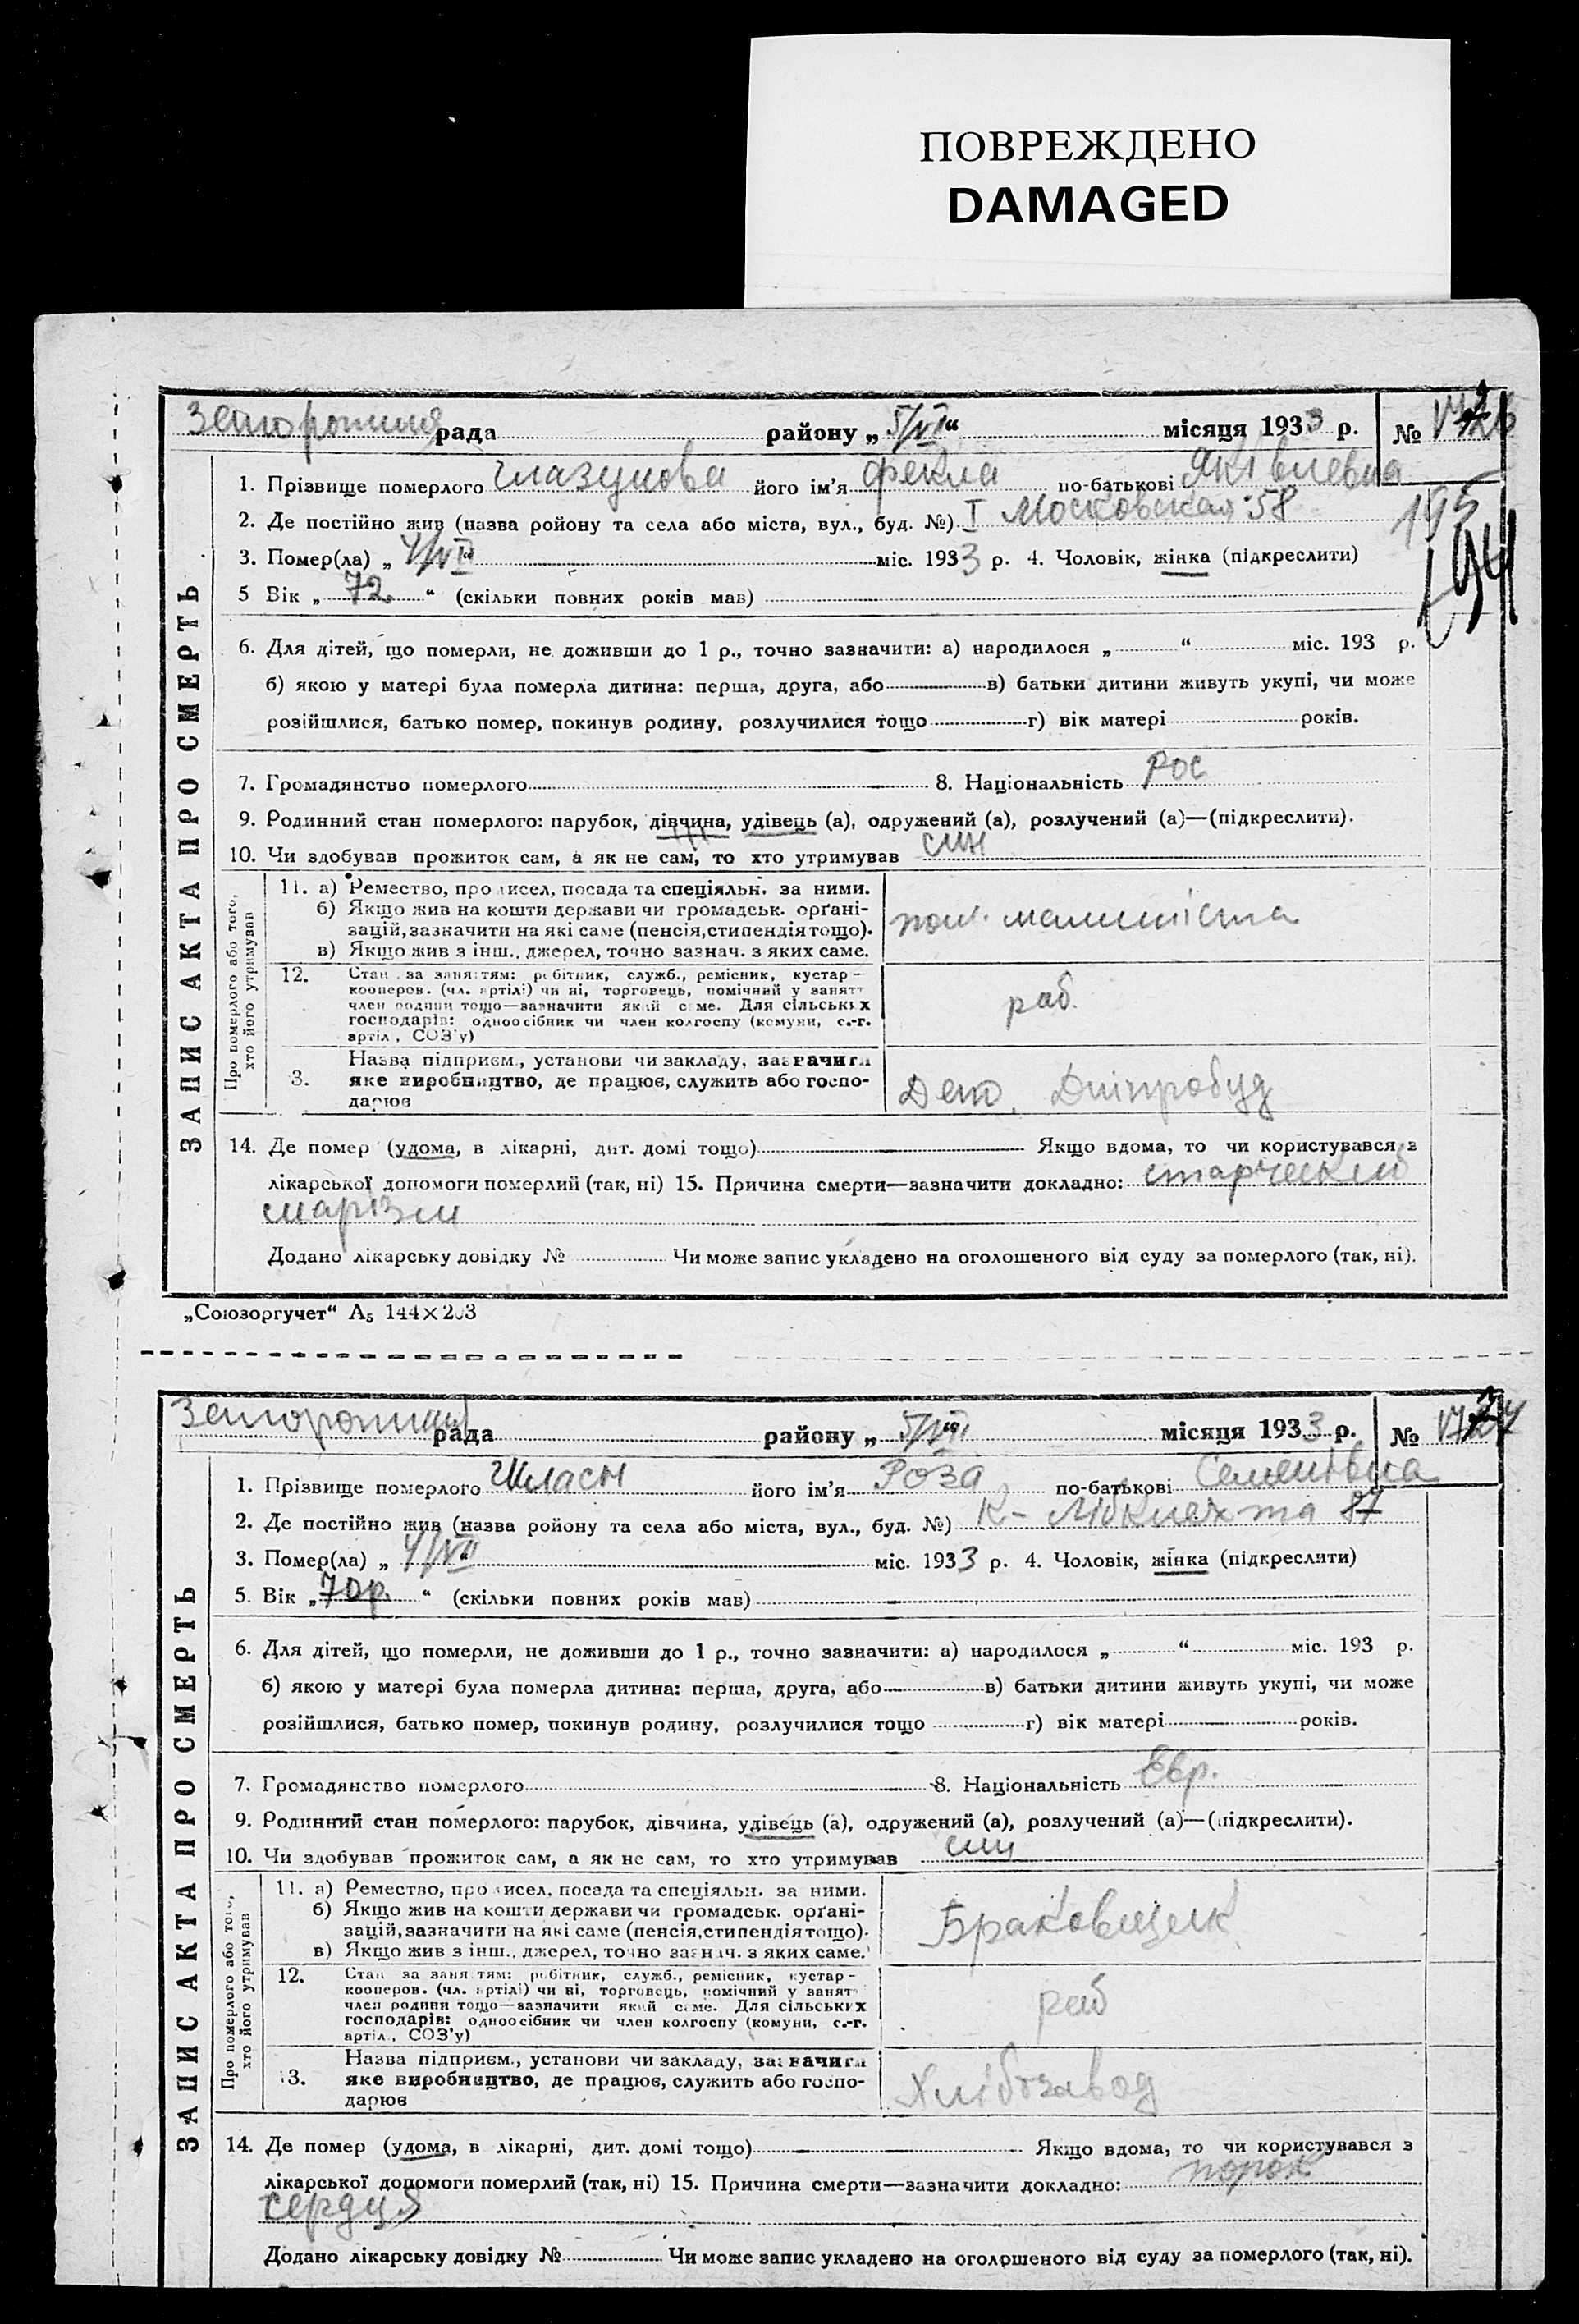 ПОВРЕЖДЕНО
DAMAGED
рада району „ 5/VII “ місяця 1933 р. №
1. Прізвище померлого Глазунова його ім’я Фекла по-батькові Яківлевна
2. Де постійно жив (назва ройону та села або міста, вул., буд. №) I Московская 58
195
194
3. Помер(ла) „ 4/VII “ міс. 1933 р. 4. Чоловік, жінка (підкреслити)
5 Вік „ 72. “ (скільки повних років мав)
6. Для дітей, що померли, не доживши до 1 р., точно зазначити: а) народилося „ “ міс. 193 р.
б) якою у матері була померла дитина: перша, друга, або в) батьки дитини живуть укупі, чи може
розійшлися, батько помер, покинув родину, розлучилися тощо г) вік матері років.
7. Громадянство померлого 8. Національність Рос
9. Родинний стан померлого: парубок, дівчина, удівець (а), одружений (а), розлучений (а)—(підкреслити).
10. Чи здобував прожиток сам, а як не сам, то хто утримував син
ЗАПИС АКТА ПРО СМЕРТЬ
Про померлого або того,
хто його утримував
11. а) Ремество, промисел, посада та спеціяльн. за ними.
б) Якщо жив на кошти держави чи громадськ. орґані-
зацій, зазначити на які саме (пенсія, стипендія тощо).
в) Якщо жив з інш., джерел, точно зазнач. з яких саме.
пом. машиніста
12. Стан за заняттям: робітник, служб., ремісник, кустар-
кооперов. (чл. артілі) чи ні, торговець, помічний у занятт
член родини тощо—зазначити який саме. Для сільських
господарів: одноосібник чи член колгоспу (комуни, с.-г.
артіл., СОЗ’у)
раб.
3. Назва підприєм., установи чи закладу, зазначити
яке виробництво, де працює, служить або госпо-
дарює
Депо. Дніпробуд
14. Де помер (удома, в лікарні, дит. домі тощо) Якщо вдома, то чи користувався з
лікарської допомоги померлий (так, ні) 15. Причина смерти—зазначити докладно: старческий
марізм
Додано лікарську довідку № Чи може запис укладено на оголошеного від суду за померлого (так, ні).
„Союзоргучет“ А5 144×203
рада району „ 5/VII “ місяця 1933 р. №
1. Прізвище померлого його ім’я Роза по-батькові Семенівна
2. Де постійно жив (назва ройону та села або міста, вул., буд. №) К-Лібкнехта 87
3. Помер(ла) „ 4/VII “ міс. 1933 р. 4. Чоловік, жінка (підкреслити)
5. Вік „ 70 р. “ (скільки повних років мав)
6. Для дітей, що померли, не доживши до 1 р., точно зазначити: а) народилося „ “ міс. 193 р.
б) якою у матері була померла дитина: перша, друга, або в) батьки дитини живуть укупі, чи може
розійшлися, батько помер, покинув родину, розлучилися тощо г) вік матері років.
7. Громадянство померлого 8. Національність Евр.
9. Родинний стан померлого: парубок, дівчина, удівець (а), одружений (а), розлучений (а)—(підкреслити).
10. Чи здобував прожиток сам, а як не сам, то хто утримував син
ЗАПИС АКТА ПРО СМЕРТЬ
Про померлого або того,
хто його утримував
11. а) Ремество, промисел, посада та спеціяльн. за ними.
б) Якщо жив на кошти держави чи громадськ. орґані-
зацій, зазначити на які саме (пенсія, стипендія тощо).
в) Якщо жив з інш., джерел, точно зазнач. з яких саме.
Браковщик
12. Стан за заняттям: робітник, служб., ремісник, кустар-
кооперов. (чл. артілі) чи ні, торговець, помічний у занят
член родини тощо—зазначити який саме. Для сільських
господарів: одноосібник чи член колгоспу (комуни, с.-г.
артіл., СОЗ’у)
раб
3. Назва підприєм., установи чи закладу, зазначити
яке виробництво, де працює, служить або госпо-
дарює
Хлібозавод
14. Де помер (удома, в лікарні, дит. домі тощо) Якщо вдома, то чи користувався з
лікарської допомоги померлий (так, ні) 15. Причина смерти—зазначити докладно: порок
сердця
Додано лікарську довідку № Чи може запис укладено на оголошеного від суду за померлого (так, ні).